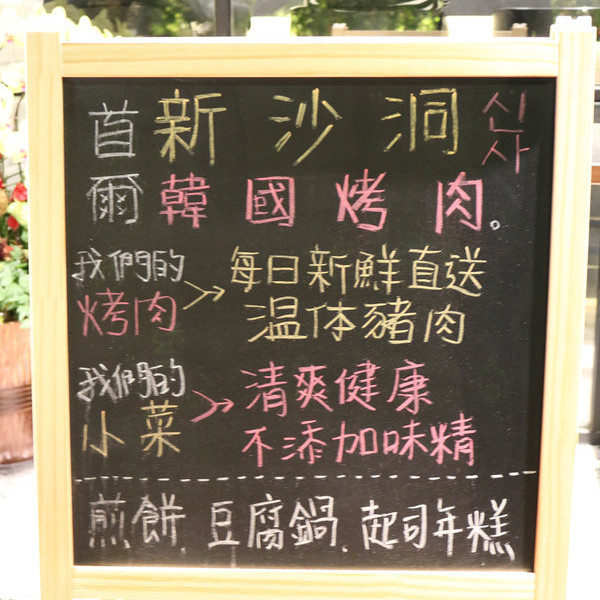 首爾 新沙洞 신사
韓國烤肉。
我們的烤肉 → 每日新鮮直送
温体豬肉
我們的小菜 → 清爽健康
不添加味精
煎餅、豆腐鍋、起司年糕